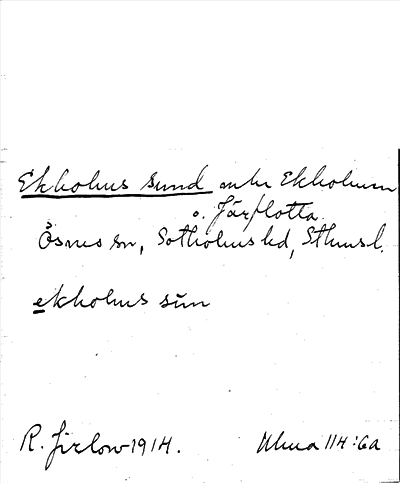 Ekholms sund mln Ekholmen
o. Järflotta.
Ösmo sn, Sotholms hd, Sthms l.
ekholms sun
R. Jirlow 1914.
114:6a